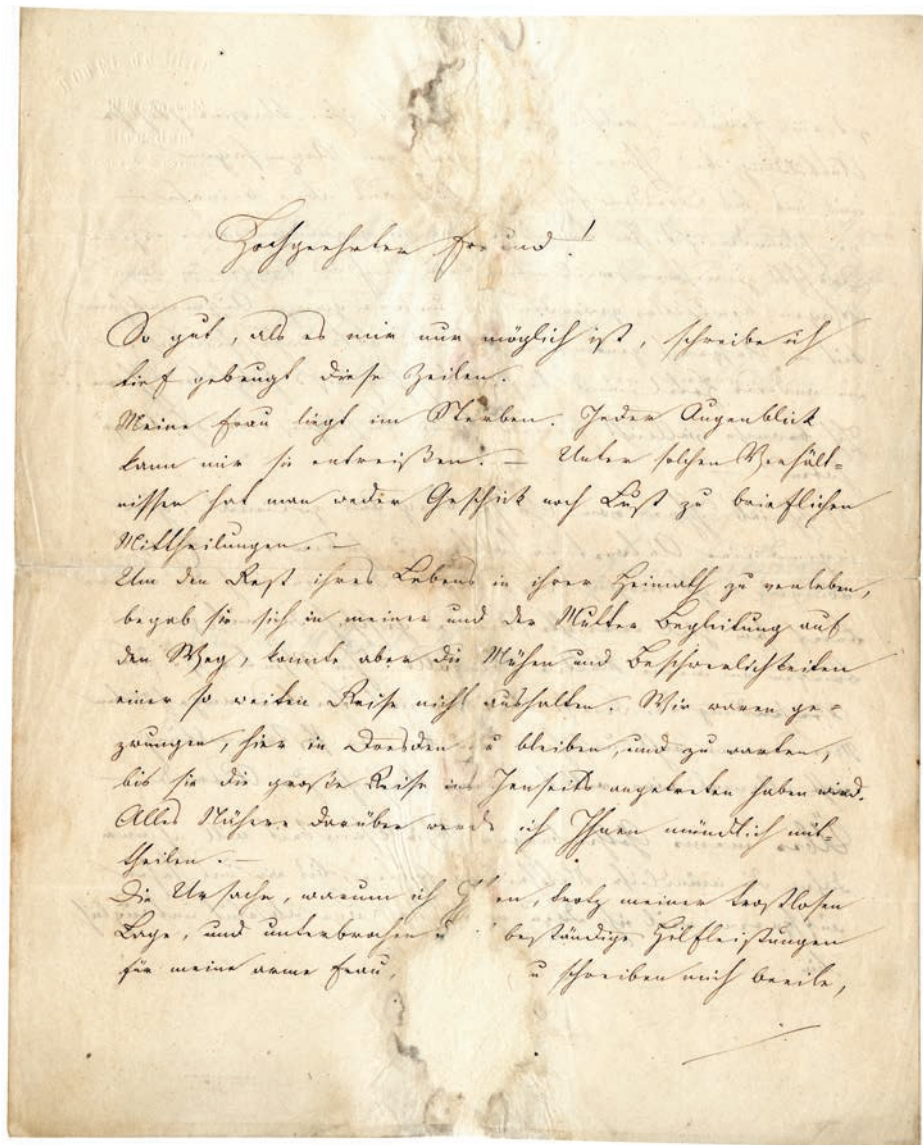 Hochgeehrter Freund!
So gut, als es mir nur möglich ist, schreibe ich
tief gebeugt diese Zeilen.
Meine Frau liegt im Sterben. Jeder Augenblick
kann mir sie entreißen. — Unter solchen Verhält-
nissen hat man weder Geschick noch Lust zu brieflichen
Mittheilungen. —
Um den Rest ihres Lebens in ihrer Heimath zu verleben,
begab sie sich in meiner und der Mutter Begleitung auf
den Weg, konnte aber die Mühen und Beschwerlichkeiten
einer so weiten Reise nicht aushalten. Wir waren ge-
zwungen, hier in Dresden zu bleiben, und zu warten,
bis sie die große Reise ins Jenseits angetreten haben wird.
Alles Nähere darüber werde ich Ihnen mündlich mit-
theilen. —
Die Ursache, warum ich Ihnen, trotz meiner trostlosen
Lage, und unterbrochen beständige Hilfleistungen
für meine arme Frau, zu schreiben mich beeile,